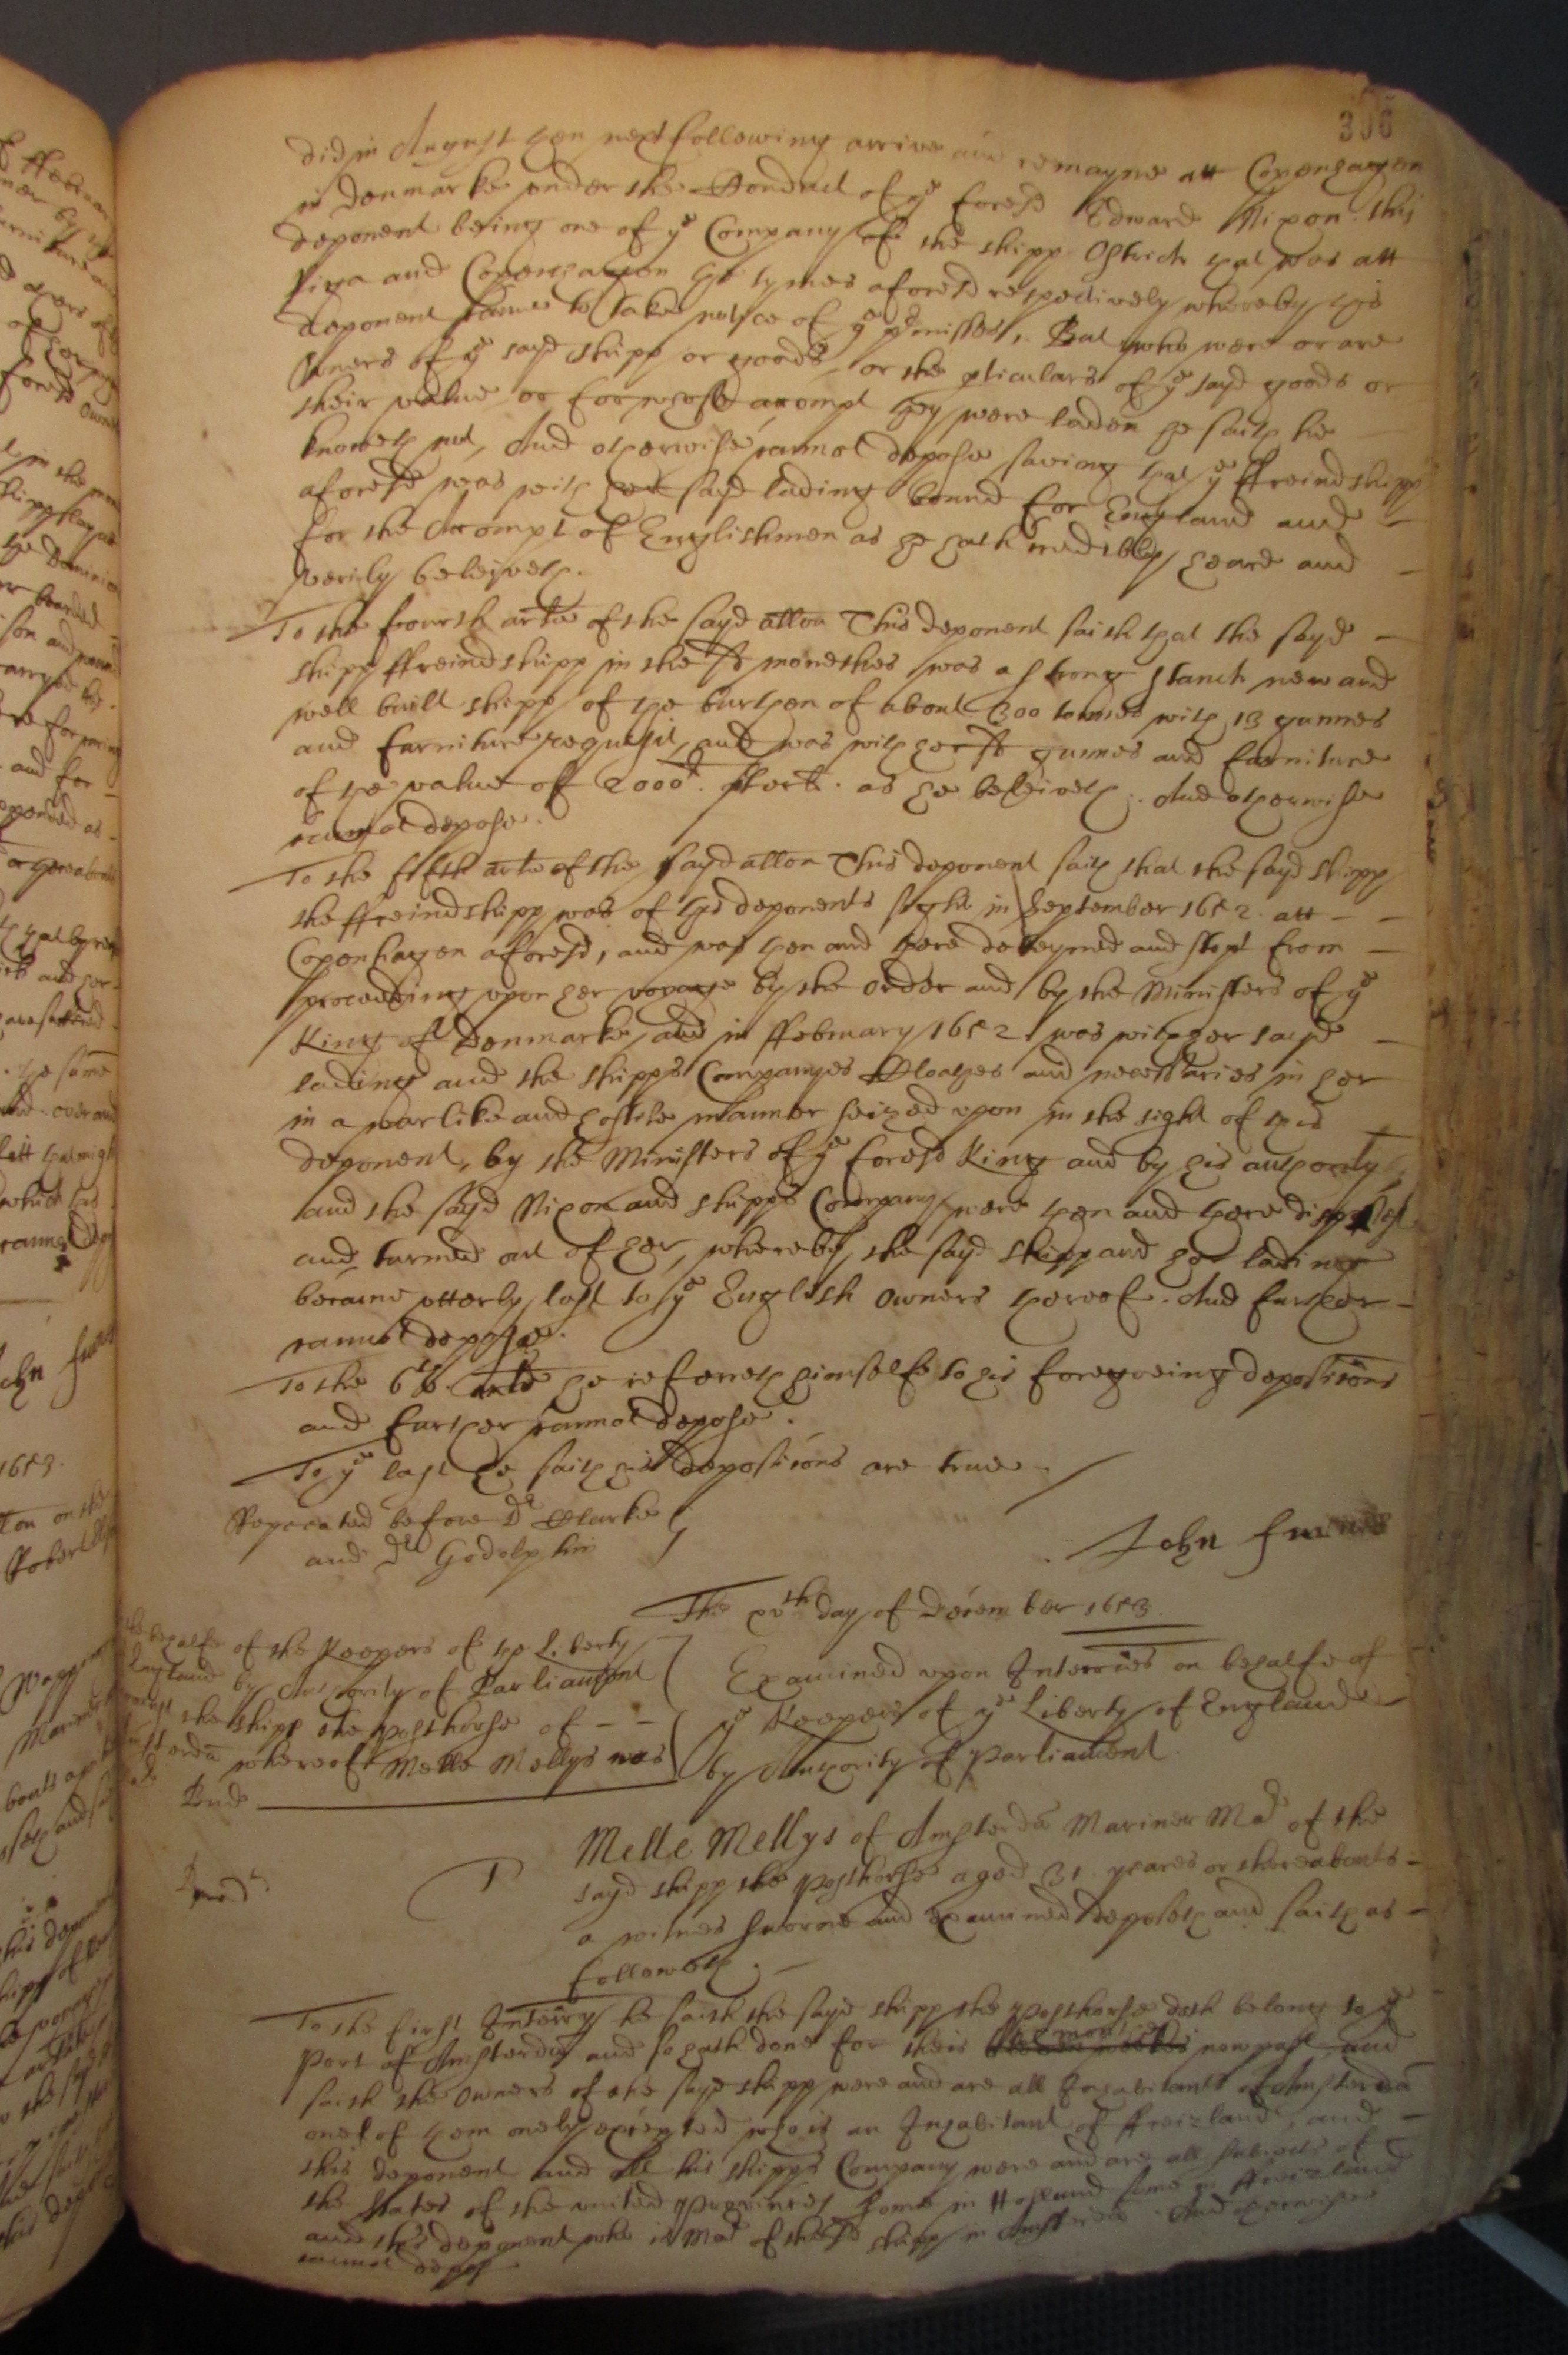 306
did in August then next following arrive and remayne att Copenhagen
in Denmarke under the Conduct of ye foresd Edward Nixon this
deponent being one of ye Company of the shipp Ostrich that was att
Riga and Copenhagen the tymes aforesd respectively whereby this
deponent came to take notice of ye p̄misses, But who were or are
Owners of ye sayd shipp or goods, or the pticulars of ye sayd goods or
their value or for whose accompt they were laden he saith he
knoweth not, And otherwise cannot depose saving that ye ffreindshipp
aforesd was with her sayd lading bound for England and
for the Accompt of Englishmen as he hath credibly heard and
verily beleiveth.
To the fourth arlẽ of the sayd allõn This deponent saith that the sayd
shipp ffreindshipp in the sd monethes was a strong stanch new and
well built shipp of the burthen of about 300 tonnes with 13 gunnes
and furniture requisit, and was with her sd gunnes and furniture
of the value of 2000li. sterl. as he beleiveth. And otherwise
cannot depose.
To the fifth arlẽ of the sayd allõn This deponent saith that the sayd shipp
the ffreindshipp was of this deponents sight in September 1652 att
Copenhagen aforesd, and was then and there deteyned and stopt from
proceeding upon her voyage by the order and by the Ministers of ye
King of Denmarke and in ffebruary 1652 was with her sayd
lading and the shipps Companyes Cloathes and necessaries in her
in a warlike and hostile manner seized upon in the sight of this
deponent, by the Ministers of ye foresd King and by his authority
and the sayd Nixon and shipps Company were then and there dispossest
and turned out of her, whereby the sayd shipp and her lading
became utterly lost to ye English Owners thereof. And further
cannot depose.
To the 6th. arlẽ he referreth himselfe to his foregoeing depositions
and further cannot depose.
To ye last he saith his depositions are true.
Repeated before Dr Clarke
and Dr Godolphin
John
The xvth day of December 1653.
behalfe of the Keepers of the Liberty
England by Authority of Parliament
the shipp the Posthorse of
whereof Melle Mellys was
Examined upon Interries on behalfe of
ye Keepers of ye Liberty of England
by Authority of Parliament
Melle Mellys of Amsterdã Mariner Mar of the
sayd shipp the Posthorse aged 31 yeares or thereabouts
a witnes sworne and examined deposeth and saith as
followeth.
To the first Interry he saith the sayd shipp the Posthorse doth belong to ye
Port of Amsterdã and so hath done for theis now past and
saith the Owners of the sayd shipp were and are all Inhabitants of Amsterdã
one of them onely excepted who is an Inhabitant of ffreizland, and
this deponent and all his shipps Company were and are all subjects of
the States of the united Provinces some in Holland some in ffreizland
and this deponent who is Mar of the sd shipp in Amsterdã And otherwise
cannot depose